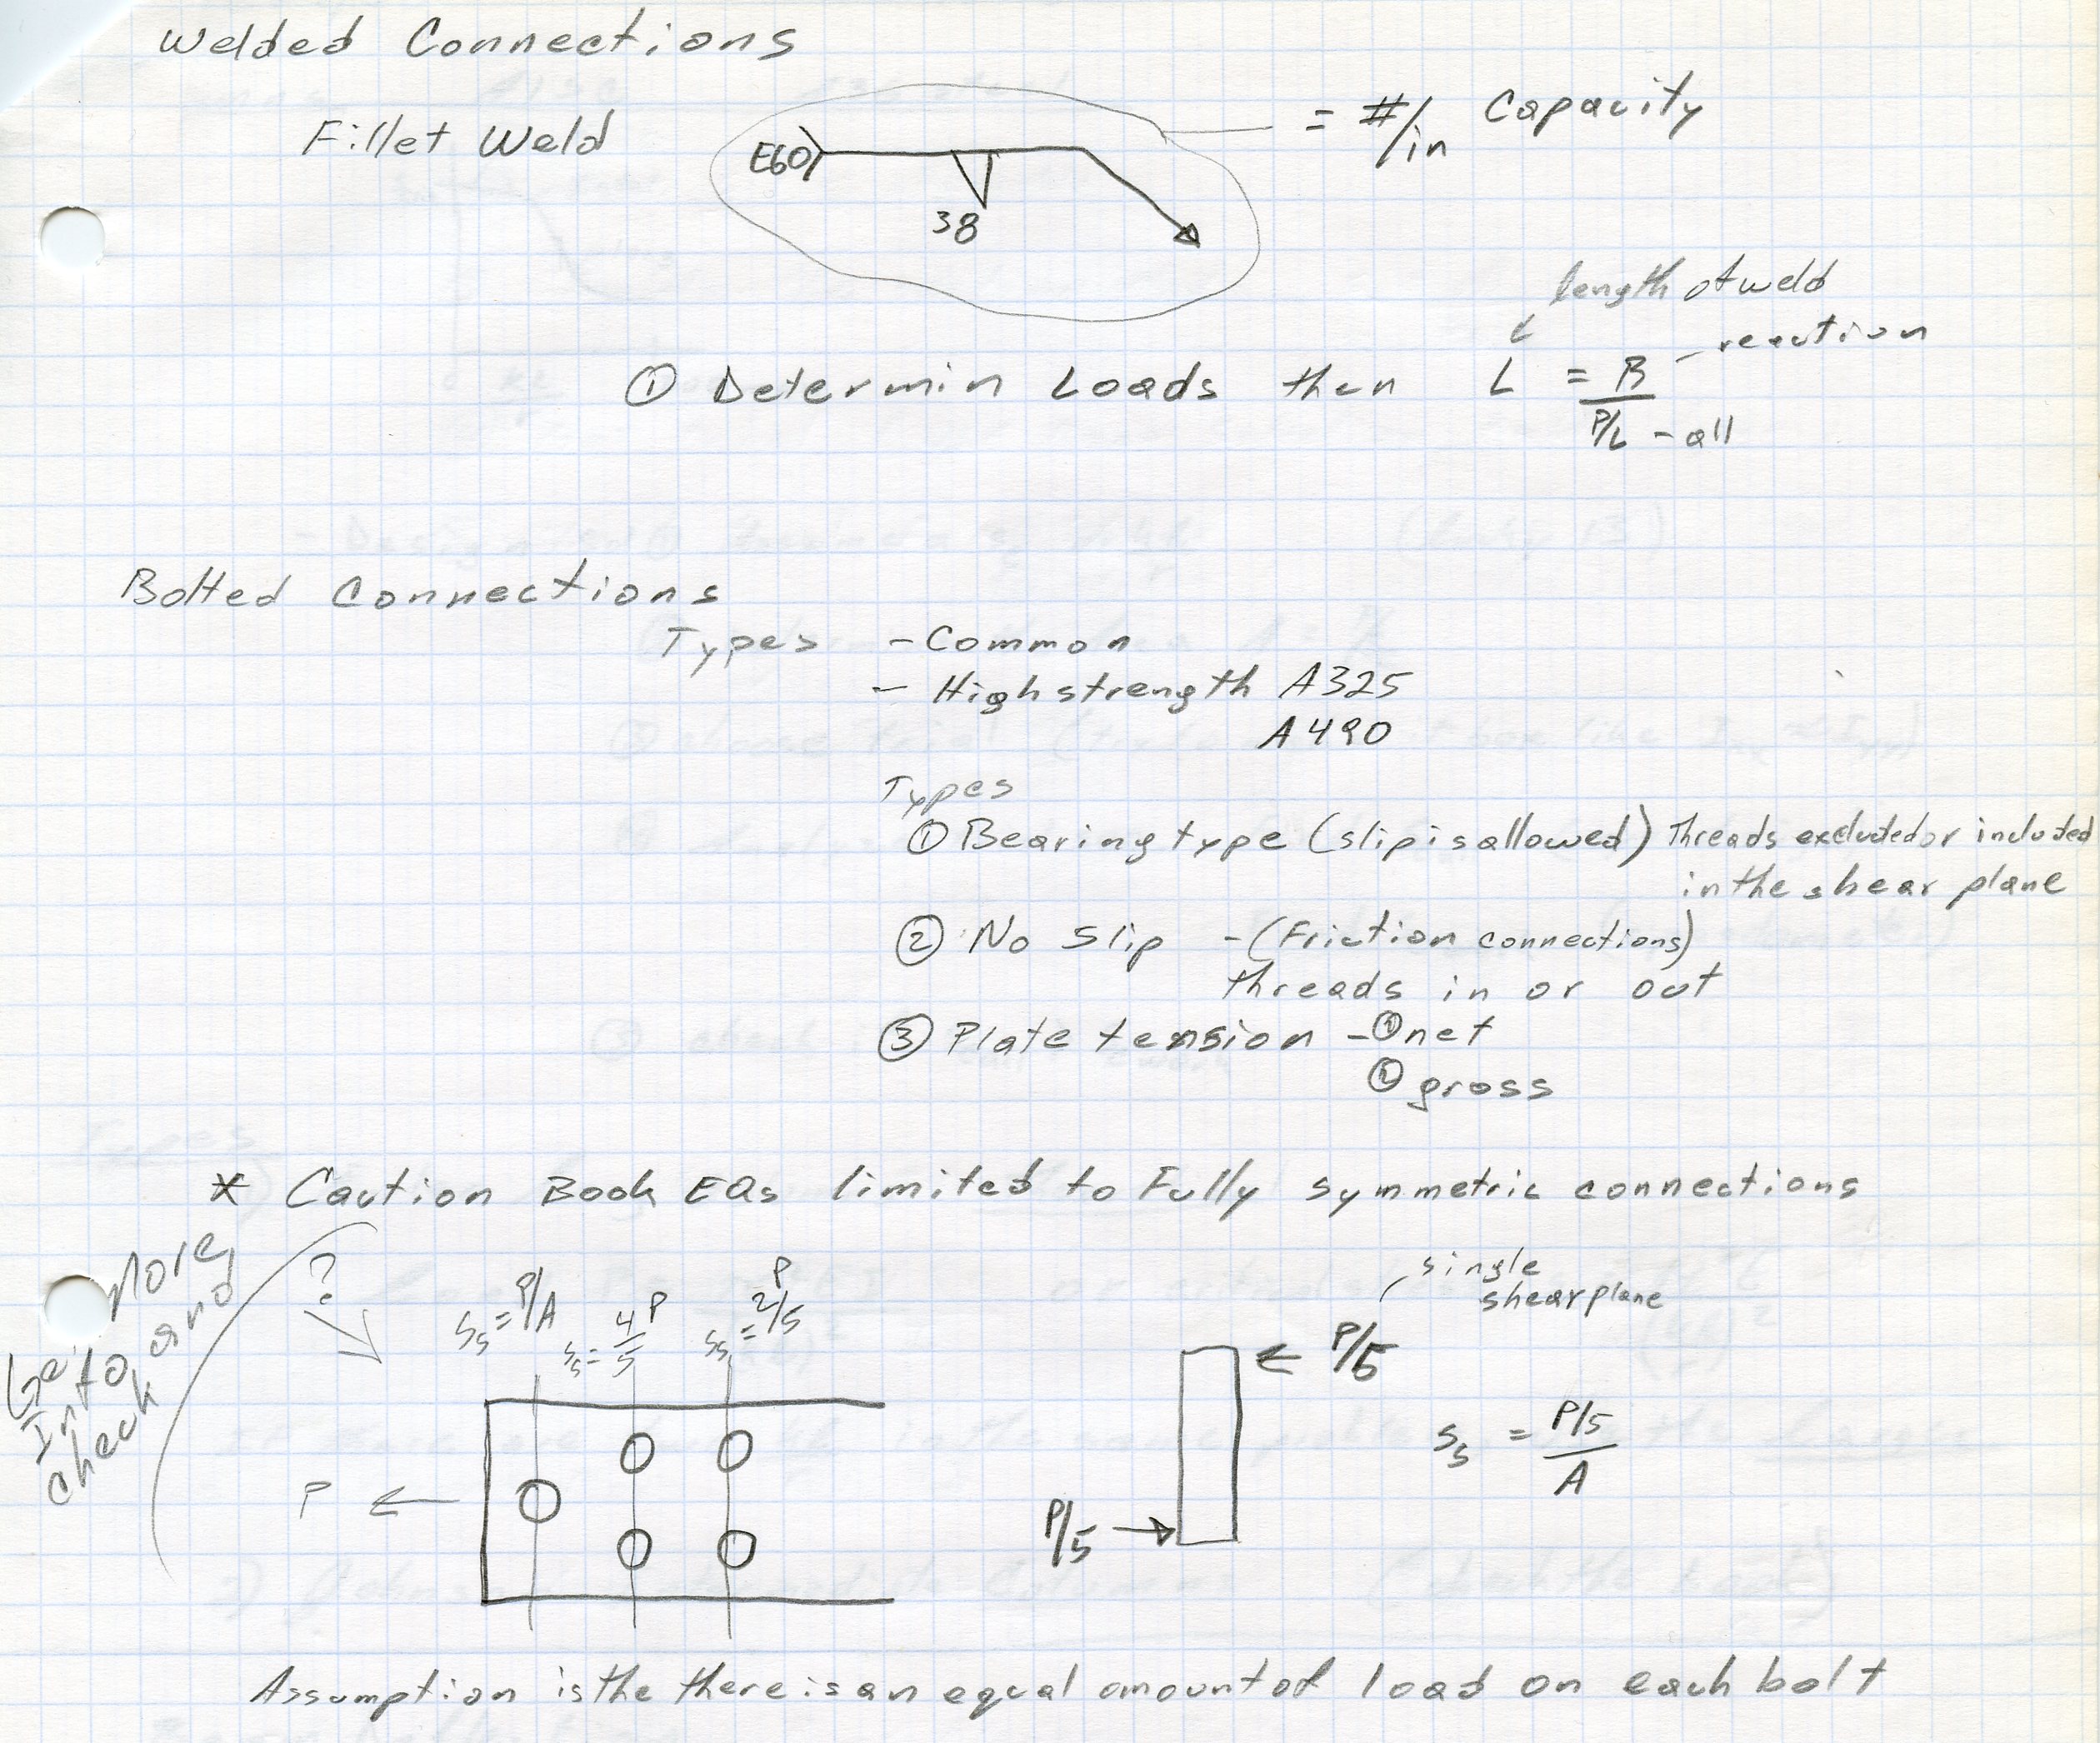 Welded Connections
Fillet Weld
E60
38
= #/in Capacity
length of weld
① Determin Loads then L = R - reaction
P/L - all
Bolted Connections
Types - Common
- High strength A325
A490
Types
① Bearing type (slip is allowed) Threads excluded or included
in the shear plane
② No Slip - (Friction connections)
threads in or out
③ Plate tension - ① net
② gross
* Caution Book EQs limited to Fully symmetric connections
More
and
Into
check
?
Ss = P/A
Ss = 4/5 P
Ss = 2/5 P
single
shear plane
P/5
P
P/5
Ss = P/5
A
Assumption is the there is an equal amount of load on each bolt